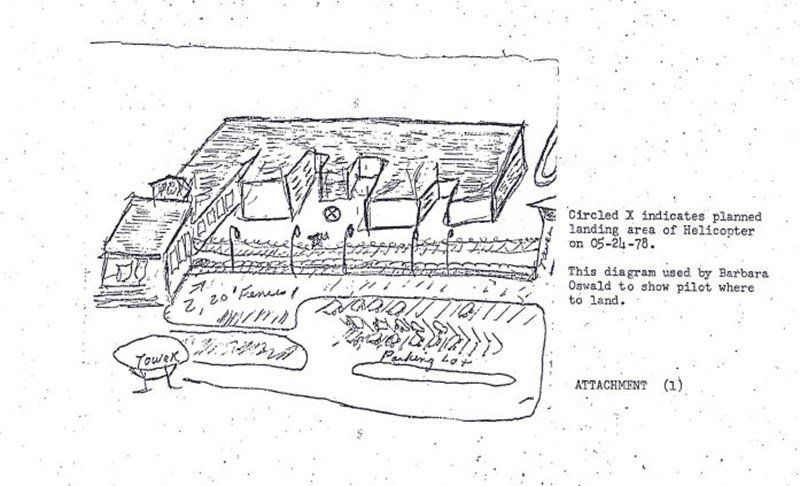 Circled X indicates planned
landing area of Helicopter
on 05-24-78.
This diagram used by Barbara
Oswald to show pilot where
to land.
2, 20' Fences
Tower
Parking Lot
ATTACHMENT (1)